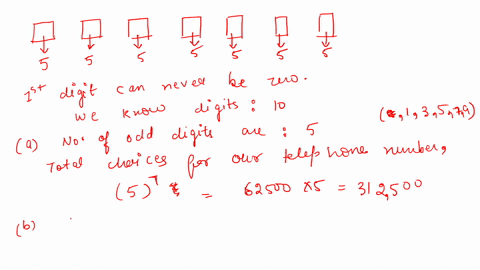 5 5 5 5 5 5 5
1st digit can never be zero.
We know digits : 10
(a) No. of odd digits are : 5 (1, 3, 5, 7, 9)
Total choices for our telephone number,
(5)^7 = 62500 × 5 = 312,500
(b)